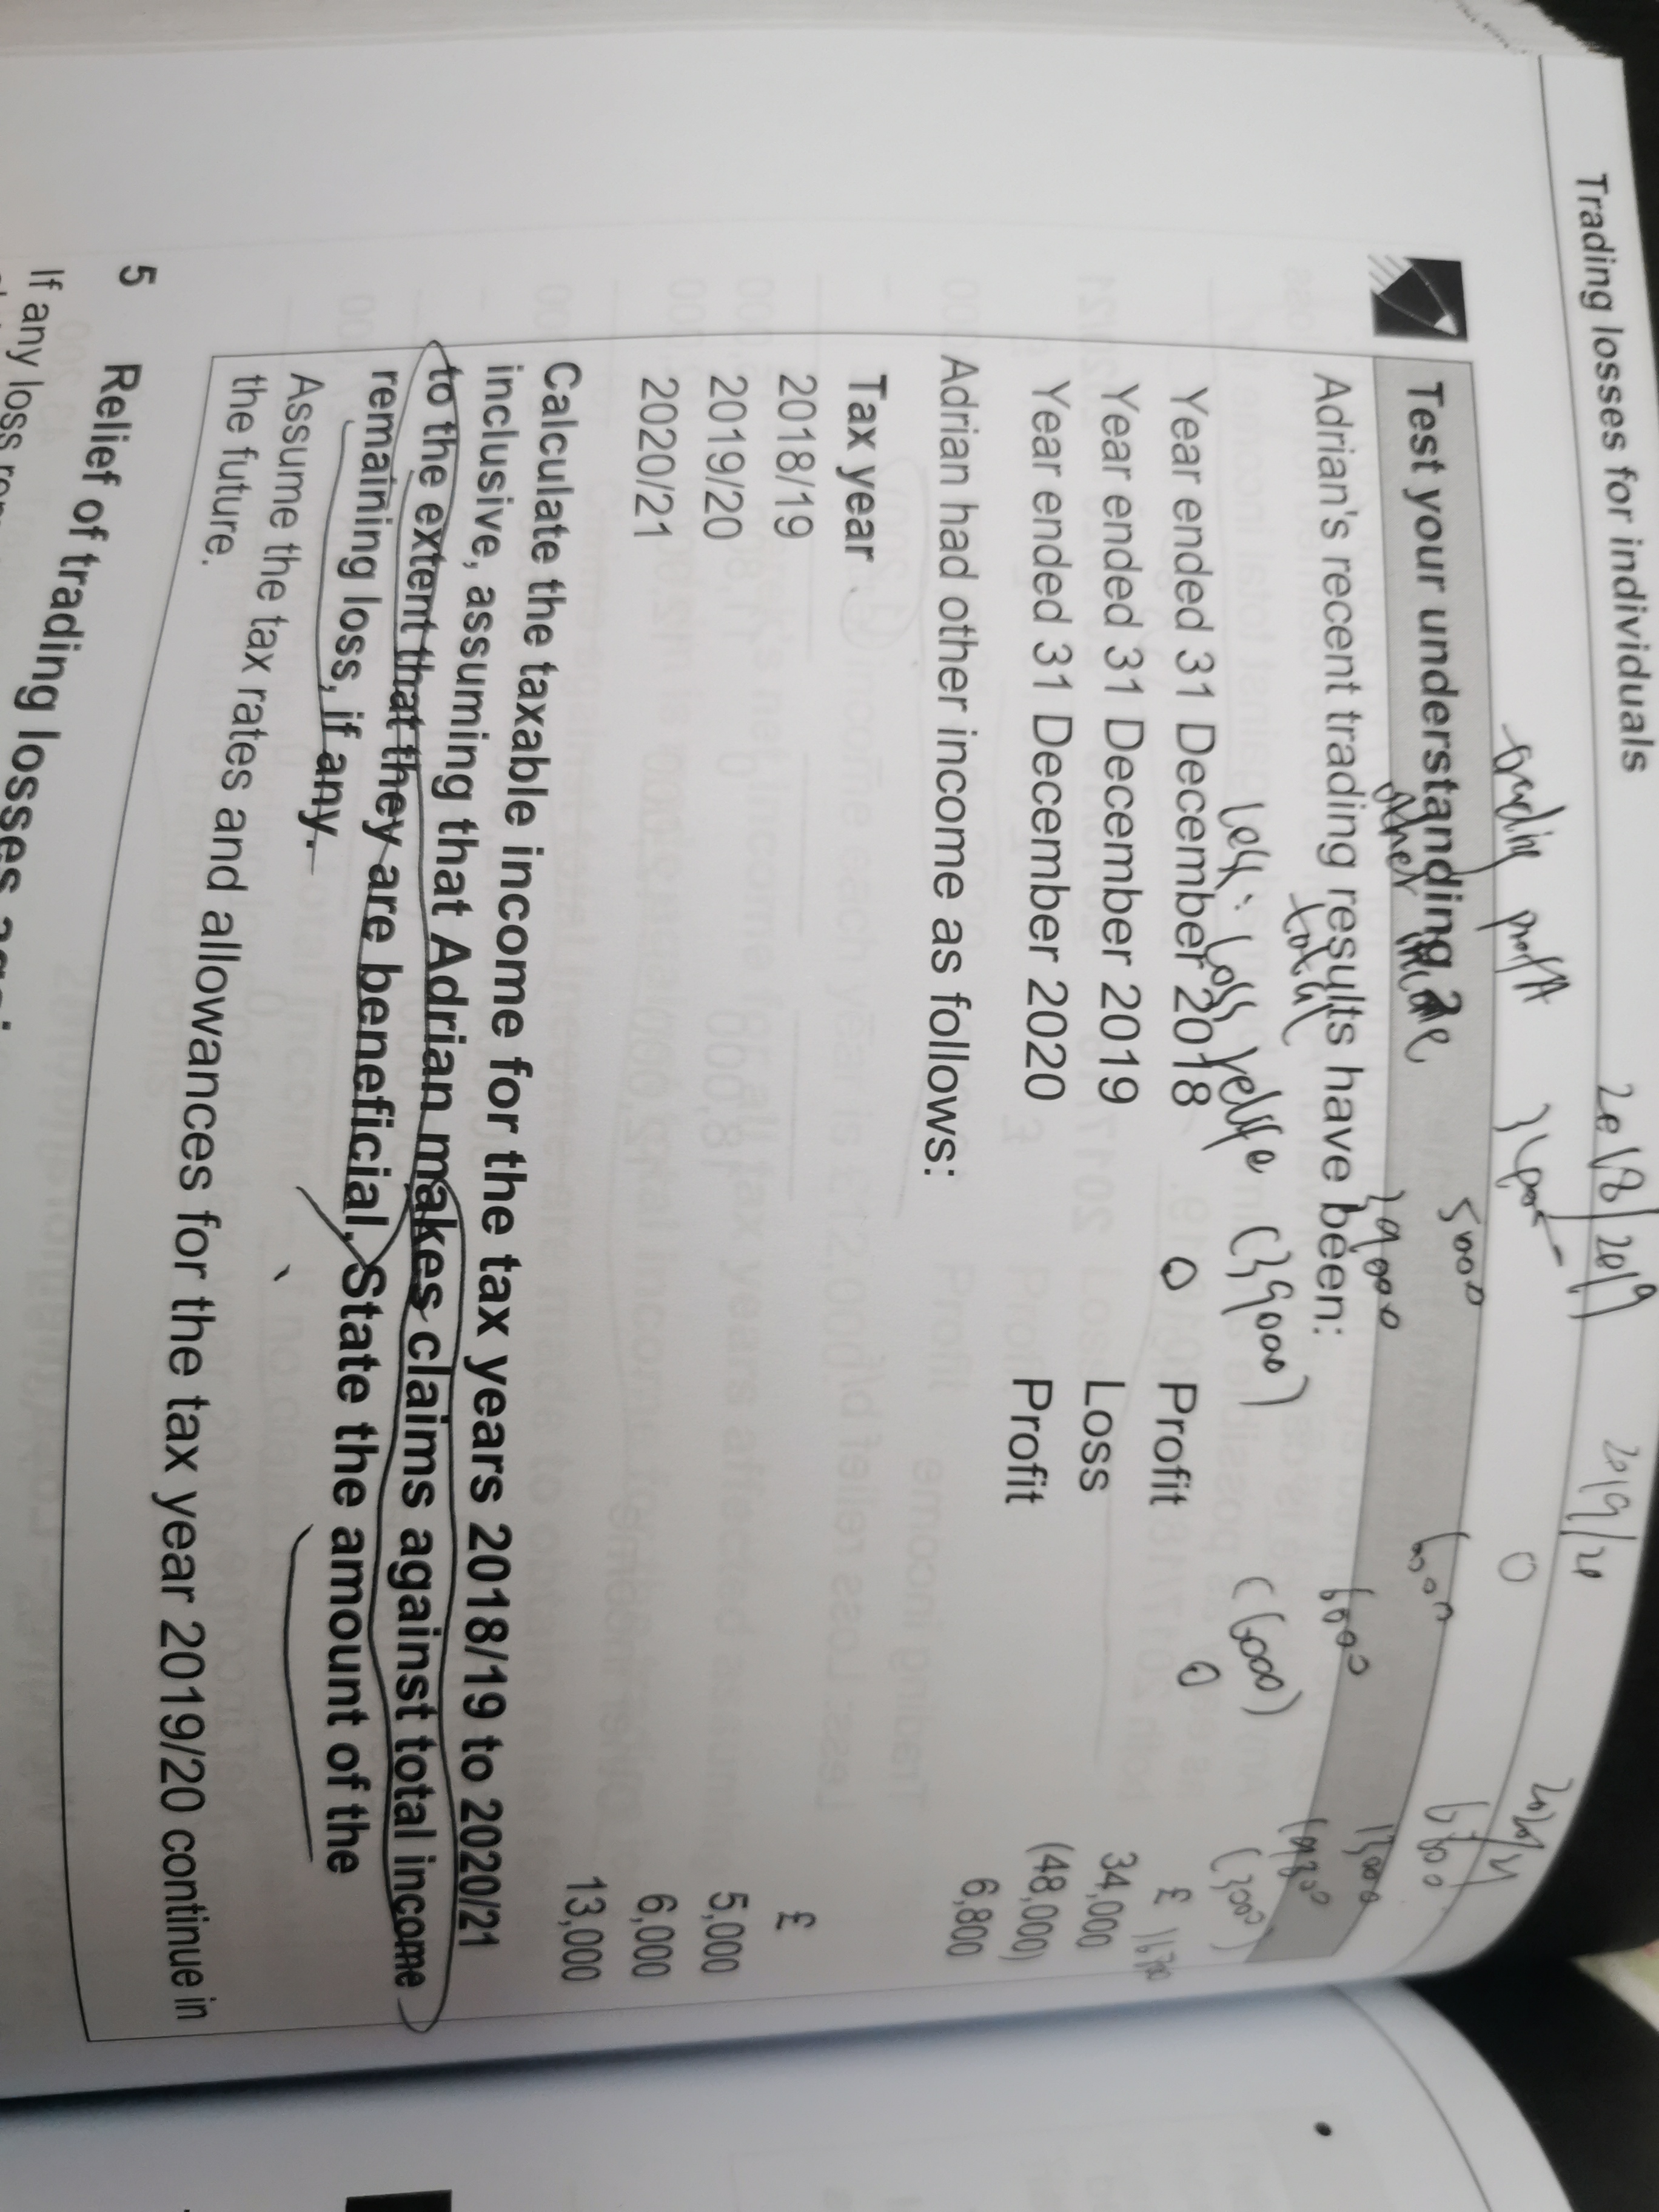 Trading losses for individuals
2018/2019 2019/20 2020/21
trading profit 0 6800
5000 6000
Test your understanding 2
other 39000 13,000
Adrian's recent trading results have been:
total 6000
less: loss (39000) (6000)
£
Year ended 31 December 2018 Profit 34,000
0 0
Year ended 31 December 2019 Loss (48,000)
Year ended 31 December 2020 Profit 6,800
Adrian had other income as follows:
Tax year £
2018/19 5,000
2019/20 6,000
2020/21 13,000
Calculate the taxable income for the tax years 2018/19 to 2020/21
inclusive, assuming that Adrian makes claims against total income
to the extent that they are beneficial. State the amount of the
remaining loss, if any.
Assume the tax rates and allowances for the tax year 2019/20 continue in
the future.
5 Relief of trading losses
If any loss